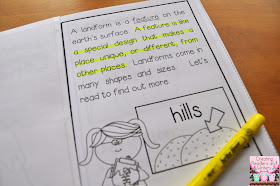 A landform is a feature on the
earth's surface. A feature is like
a special design that makes a
place unique, or different, from
other places. Landforms come in
many shapes and sizes. Let's
read to find out more.
hills
Creating
Readers and
Writers